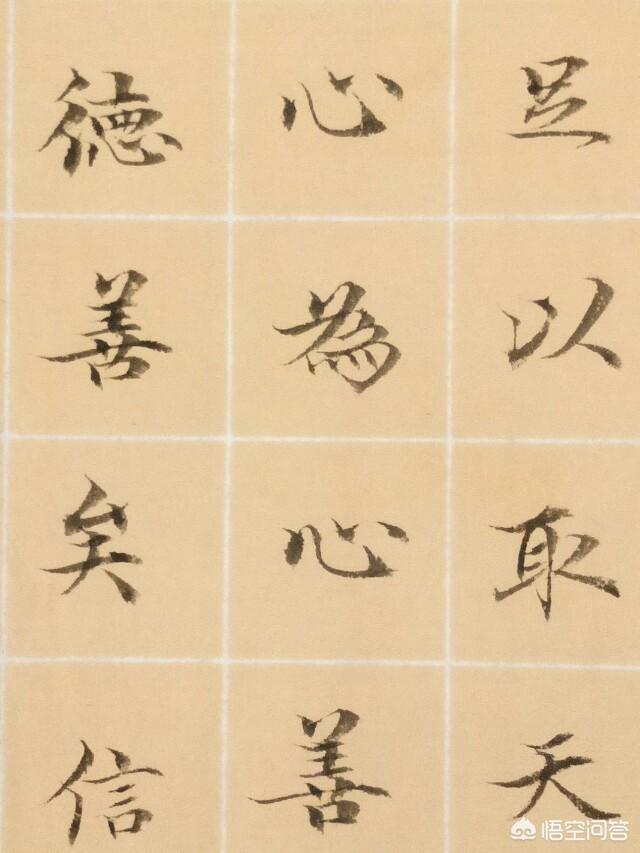 足以取天
心為心善
德善矣信
悟空问答